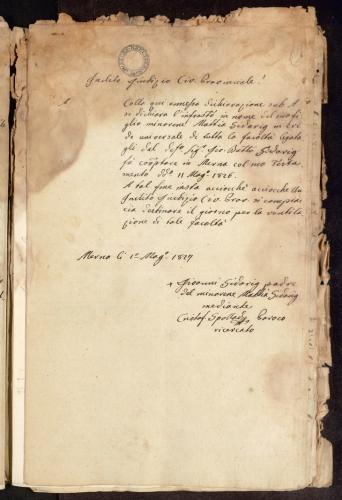 Inclito Giudizio Civ. Provinciale!
Colla qui annessa dichiarazione sub A
si dichiara l'infratto in nome del suo fi-
glio minorene Mattia Sidarig in eri-
de universale di tutta la facoltà legata
gli dal def.º Sig.r Gio. Batta Sidarig
fù coõptore in Merna col suo Testa-
mento dd.º 11 Mag.º 1826.
A tal fine insta acciochè acciochè
Inclito Giudizio Civ. Prov. si compiac-
cia destinare il giorno per la ventila-
zione di tale facoltà
Merna li 1.mo Mag.º 1827
+ Giovanni Sidarig padre
del minorene Mattia Sidarig
mediante
Cristof. Spolladi
ricercato